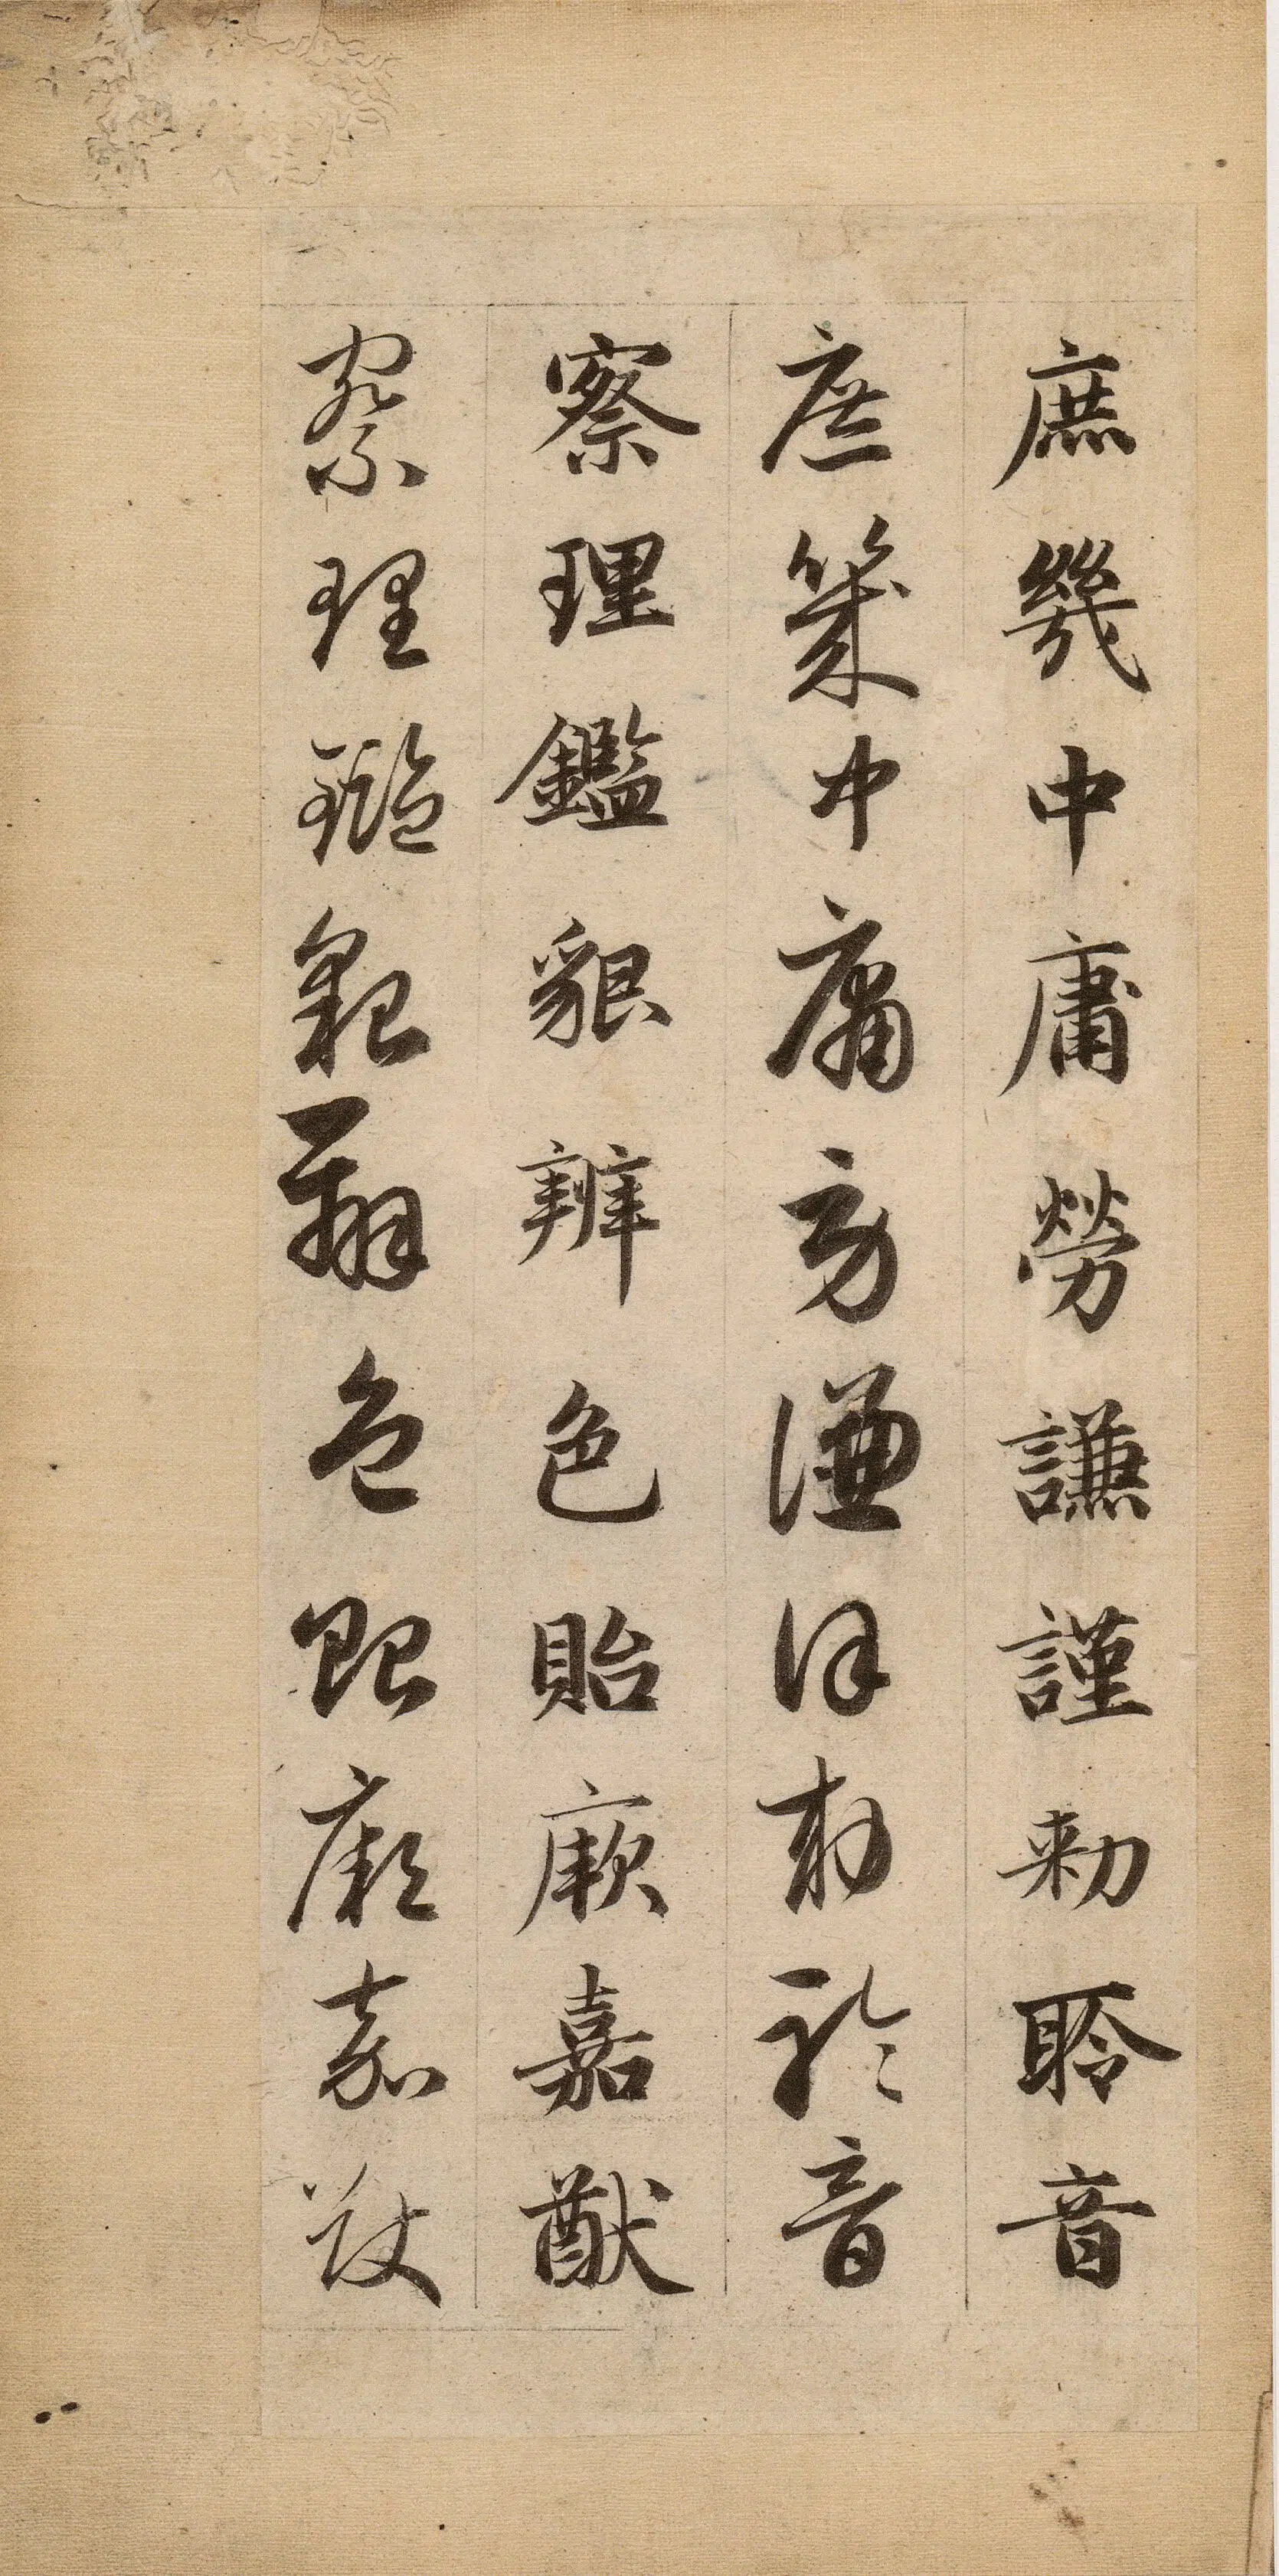 庶幾中庸勞謙謹勅聆音
庶幾中庸勞謙謹勅聆音
察理鑑貌辨色貽厥嘉猷
察理鑑貌辨色貽厥嘉猷